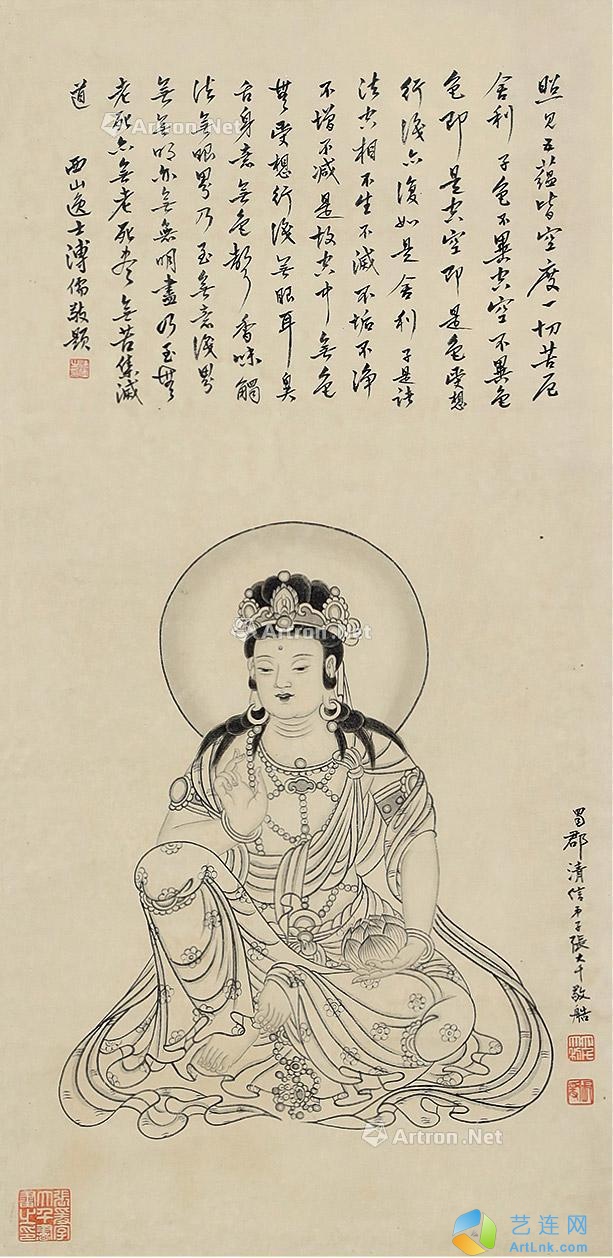 照見五蘊皆空度一切苦厄
舍利子色不異空空不異色
色即是空空即是色受想
行識亦復如是舍利子是諸
法空相不生不滅不垢不淨
不增不減是故空中無色
無受想行識無眼耳鼻
舌身意無色聲香味觸
法無眼界乃至無意識界
無無明亦無無明盡乃至無
老死亦無老死盡無苦集滅
道
西山逸士溥儒敬題
蜀郡清信弟子張大千敬艁
Artron.Net
Artron.Net
Artron.Net
Artron.Net
Artron.Net
艺连网
ArtLnk.com